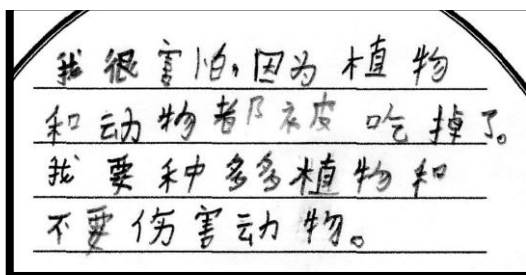 我很害怕,因为植物
和动物都被吃掉了。
我要种多多植物和
不要伤害动物。